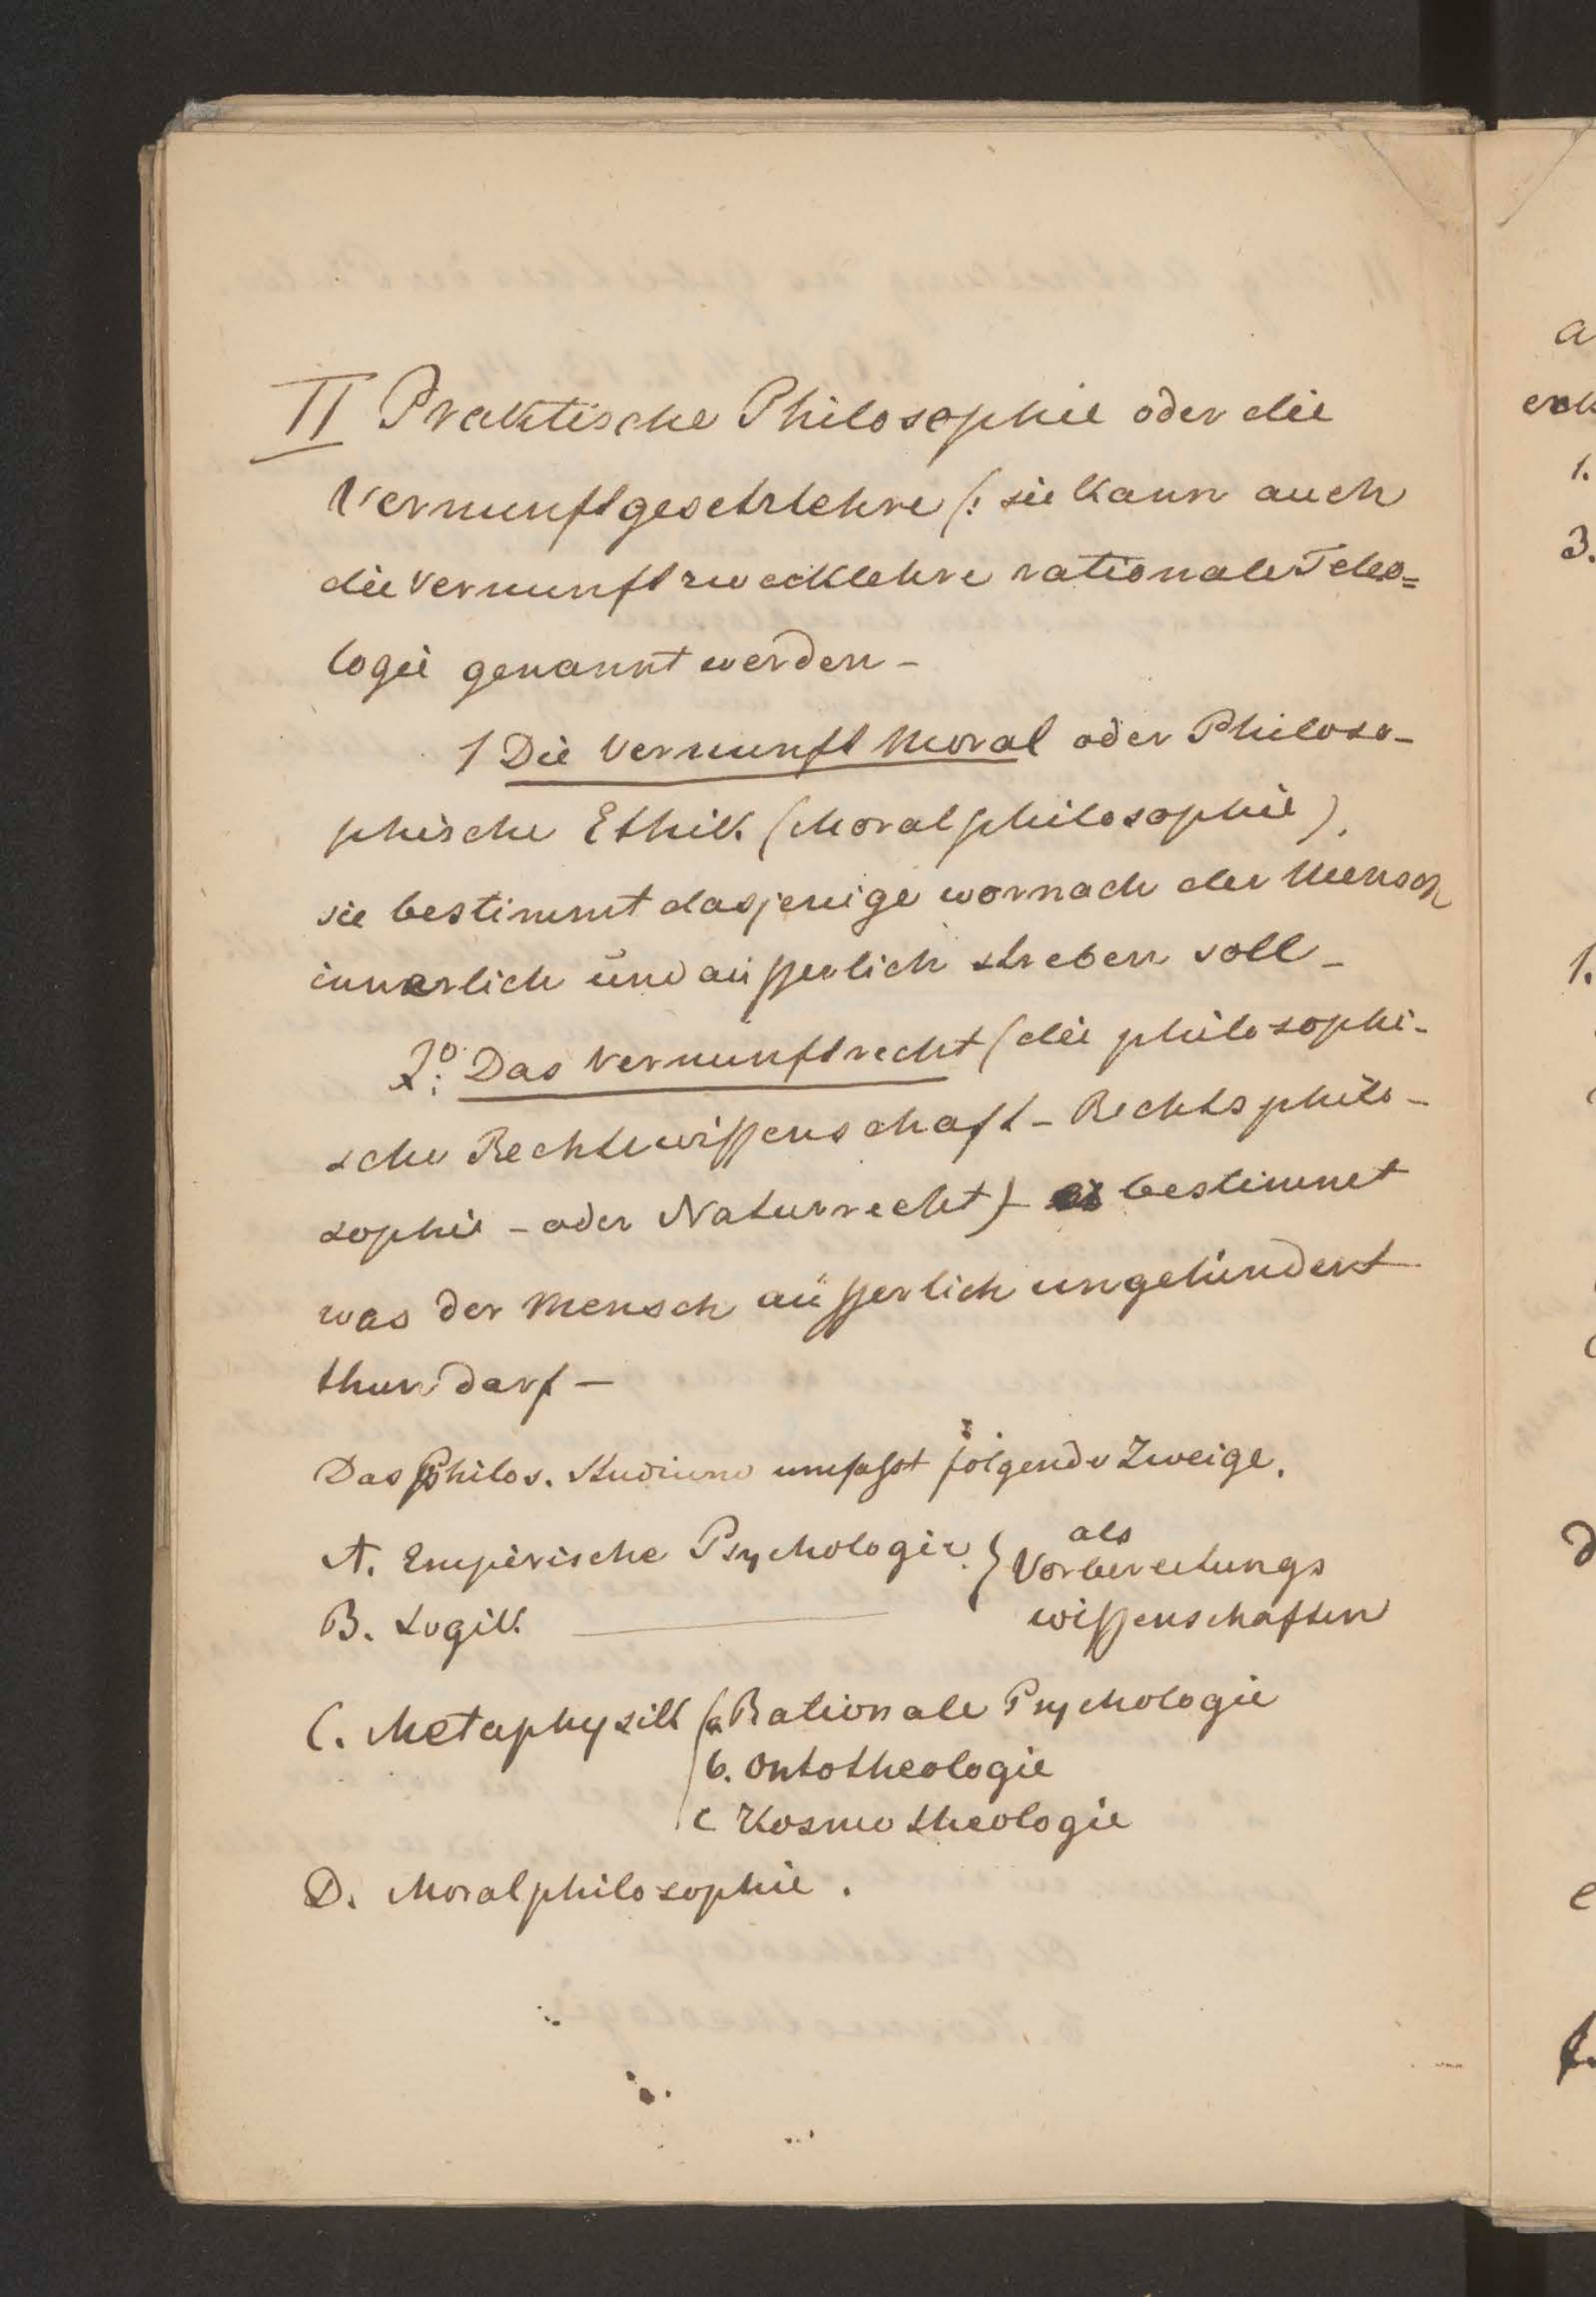 II Praktische Philosophie oder die
Vernunftgesetzlehre (: sie kann auch
die Vernunftzwecklehre rationale Teleo=
logie genannt werden -
1 Die Vernunft Moral oder Philoso-
phische Ethik (Moralphilosophie).
sie bestimmt dasjenige wornach der Mensch
innerlich und äußerlich streben soll -
2o: Das Vernunftrecht (die philosophi-
sche Rechtswissenschaft - Rechtsphilo-
sophie - oder Naturrecht) - es bestimmt
was der Mensch äußerlich ungehindert
thun darf -
Das Philos. Studium umfaßt folgende Zweige.
A. Empirische Psychologie. } als
Vorbereitungs
B. Logik ——— wissenschaften
C. Metaphysik (a Rationale Psychologie
b. Ontotheologie
c Kosmotheologie
D. Moralphilosophie.